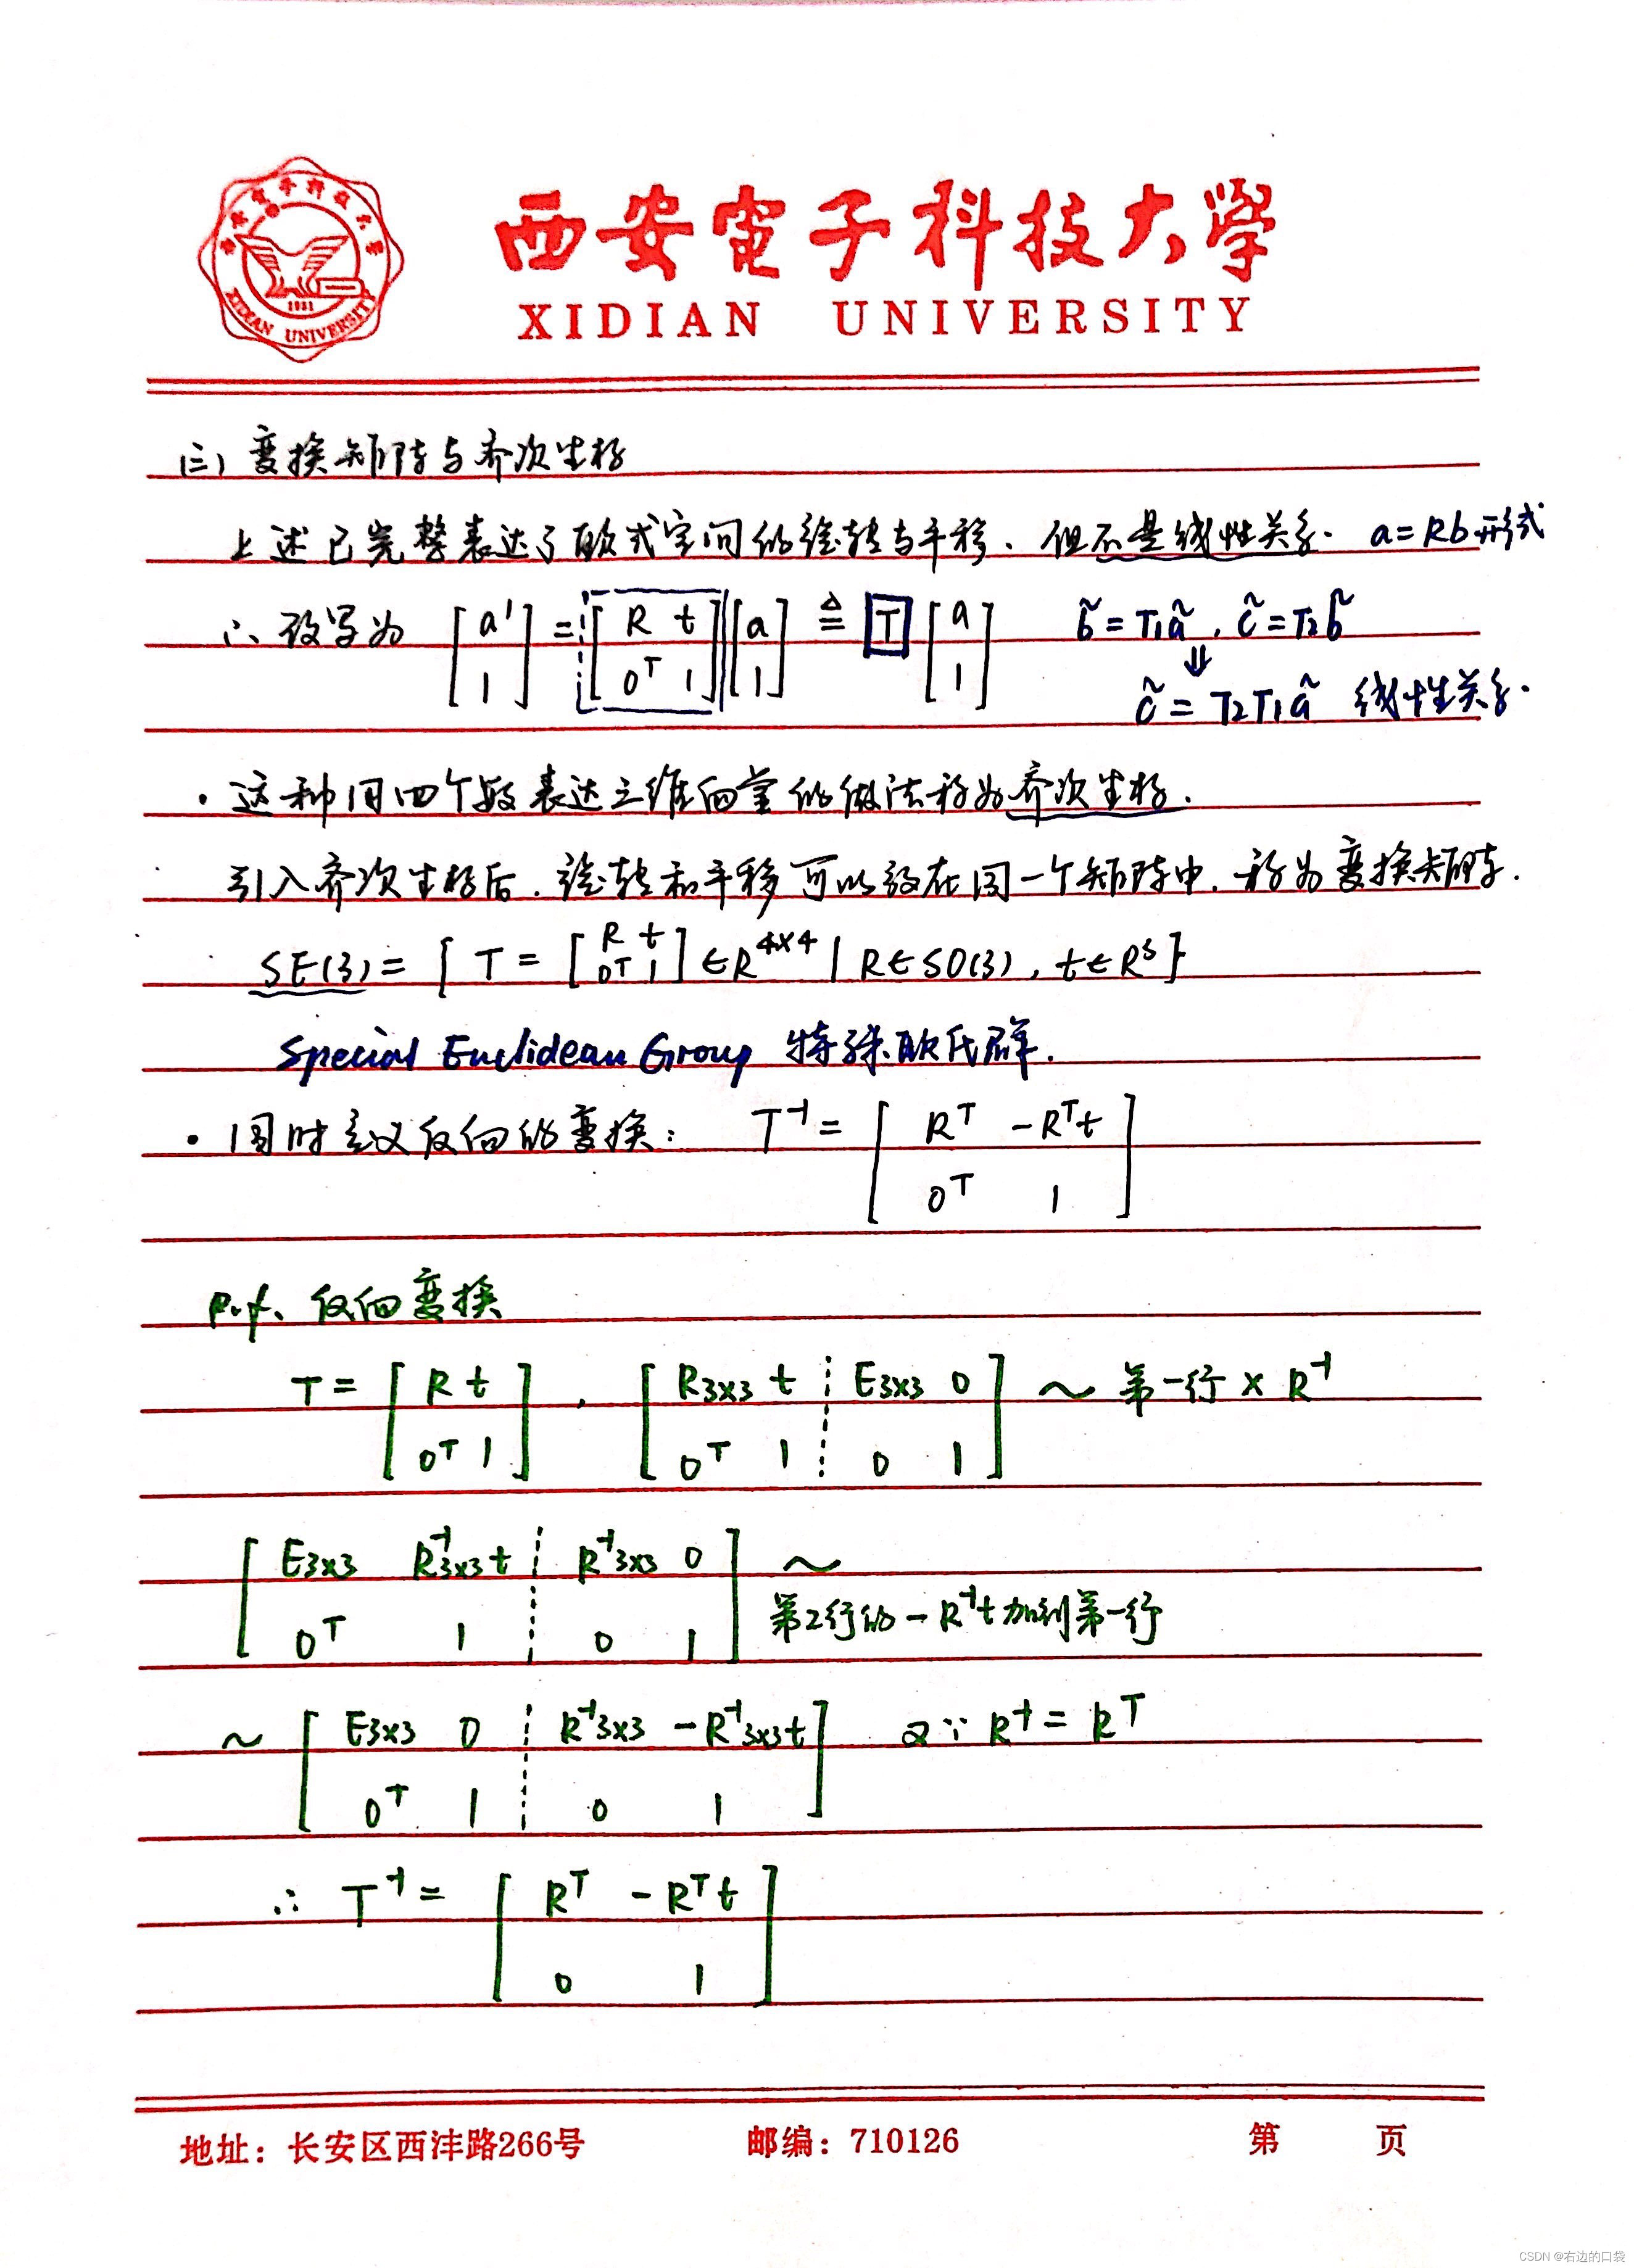 西安電子科技大學
XIDIAN UNIVERSITY
1931
XIDIAN UNIVERSITY
(三) 变换矩阵与齐次坐标
上述已完整表达了欧式空间的旋转与平移、但不是线性关系. a=Rb形式
∴ 改写为 [a' ; 1] = [R t ; 0ᵀ 1] [a ; 1] ≜ T [a ; 1] b̃ = T₁ã , c̃ = T₂b̃
⇓
c̃ = T₂T₁ã 线性关系.
· 这种用四个数表达三维向量的做法称为齐次坐标.
引入齐次坐标后. 旋转和平移可以放在同一个矩阵中. 称为变换矩阵.
SE(3) = { T = [R t ; 0ᵀ 1] ∈ R⁴ˣ⁴ | R∈SO(3), t∈R³ }
Special Euclidean Group 特殊欧氏群.
· 同时定义反向的变换: T⁻¹ = [Rᵀ -Rᵀt ; 0ᵀ 1]
P.f. 反向变换
T = [R t ; 0ᵀ 1] , [R3x3 t ┆ E3x3 0 ; 0ᵀ 1 ┆ 0 1] ~ 第一行 x R⁻¹
[E3x3 R⁻¹3x3t ┆ R⁻¹3x3 0 ; 0ᵀ 1 ┆ 0 1] ~
第2行的 -R⁻¹t加到第一行
~ [E3x3 0 ┆ R⁻¹3x3 -R⁻¹3x3t ; 0ᵀ 1 ┆ 0 1] 又∵ R⁻¹ = Rᵀ
∴ T⁻¹ = [Rᵀ -Rᵀt ; 0 1]
地址：长安区西沣路266号 邮编：710126 第 页
CSDN @右边的口袋